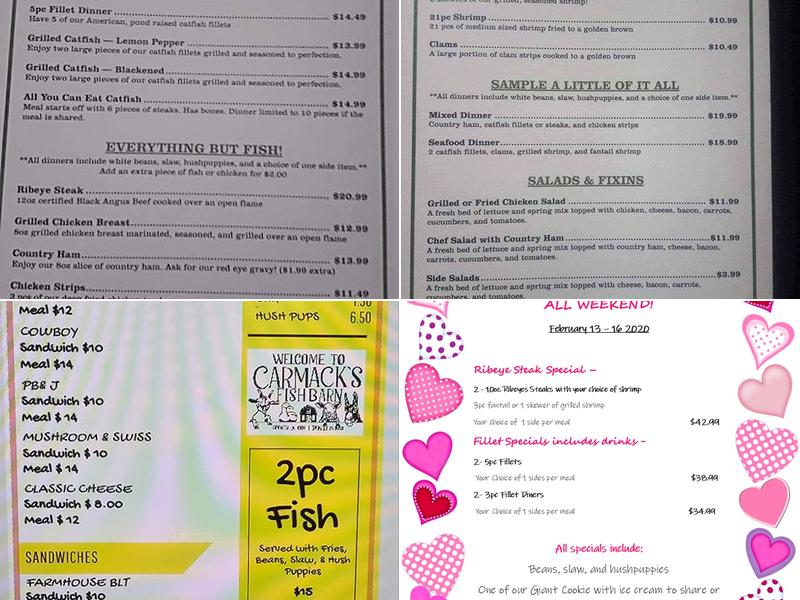 5pc Fillet Dinner $14.49
Have 5 of our American, pond raised catfish fillets
Grilled Catfish — Lemon Pepper $13.99
Enjoy two large pieces of our catfish fillets grilled and seasoned to perfection.
Grilled Catfish — Blackened $14.99
Enjoy two large pieces of our catfish fillets grilled and seasoned to perfection.
All You Can Eat Catfish $14.99
Meal starts off with 6 pieces of steaks. Has bones. Dinner limited to 10 pieces if the
meal is shared.
EVERYTHING BUT FISH!
**All dinners include white beans, slaw, hushpuppies, and a choice of one side item.**
Add an extra piece of fish or chicken for $2.00
Ribeye Steak $20.99
12oz certified Black Angus Beef cooked over an open flame
Grilled Chicken Breast $12.99
8oz grilled chicken breast marinated, seasoned, and grilled over an open flame
Country Ham $13.99
Enjoy our 8oz slice of country ham. Ask for our red eye gravy! ($1.99 extra)
Chicken Strips $11.49
21pc Shrimp $10.99
21 pcs of medium sized shrimp fried to a golden brown
Clams $10.49
A large portion of clam strips cooked to a golden brown
SAMPLE A LITTLE OF IT ALL
**All dinners include white beans, slaw, hushpuppies, and a choice of one side item.**
Mixed Dinner $19.99
Country ham, catfish fillets or steaks, and chicken strips
Seafood Dinner $18.99
2 catfish fillets, clams, grilled shrimp, and fantail shrimp
SALADS & FIXINS
Grilled or Fried Chicken Salad $11.99
A fresh bed of lettuce and spring mix topped with chicken, cheese, bacon, carrots,
cucumbers, and tomatoes.
Chef Salad with Country Ham $11.99
A fresh bed of lettuce and spring mix topped with country ham, cheese, bacon,
carrots, cucumbers, and tomatoes.
Side Salads $3.99
A fresh bed of lettuce and spring mix topped with cheese, bacon, carrots,
cucumbers, and tomatoes.
Meal $12
COWBOY
Sandwich $10
Meal $14
PB& J
Sandwich $10
Meal $ 14
MUSHROOM & SWISS
Sandwich $ 10
Meal $ 14
CLASSIC CHEESE
Sandwich $ 8.00
Meal $ 12
SANDWICHES
FARMHOUSE BLT
Sandwich $10
HUSH PUPS 6.50
WELCOME TO
CARMACK'S
FISH BARN
2pc
Fish
Served with Fries,
Beans, Slaw, & Hush
Puppies
$15
ALL WEEKEND!
February 13 – 16 2020
Ribeye Steak Special –
2 - 10oz Ribeyes Steaks with your choice of shrimp
3pc fantail or 1 skewer of grilled shrimp
Your choice of 1 side per meal $42.99
Fillet Specials includes drinks –
2- 5pc Fillets
Your Choice of 1 sides per meal $38.99
2- 3pc Fillet Diners
Your Choice of 1 sides per meal $34.99
All specials include:
Beans, slaw, and hushpuppies
One of our Giant Cookie with ice cream to share or